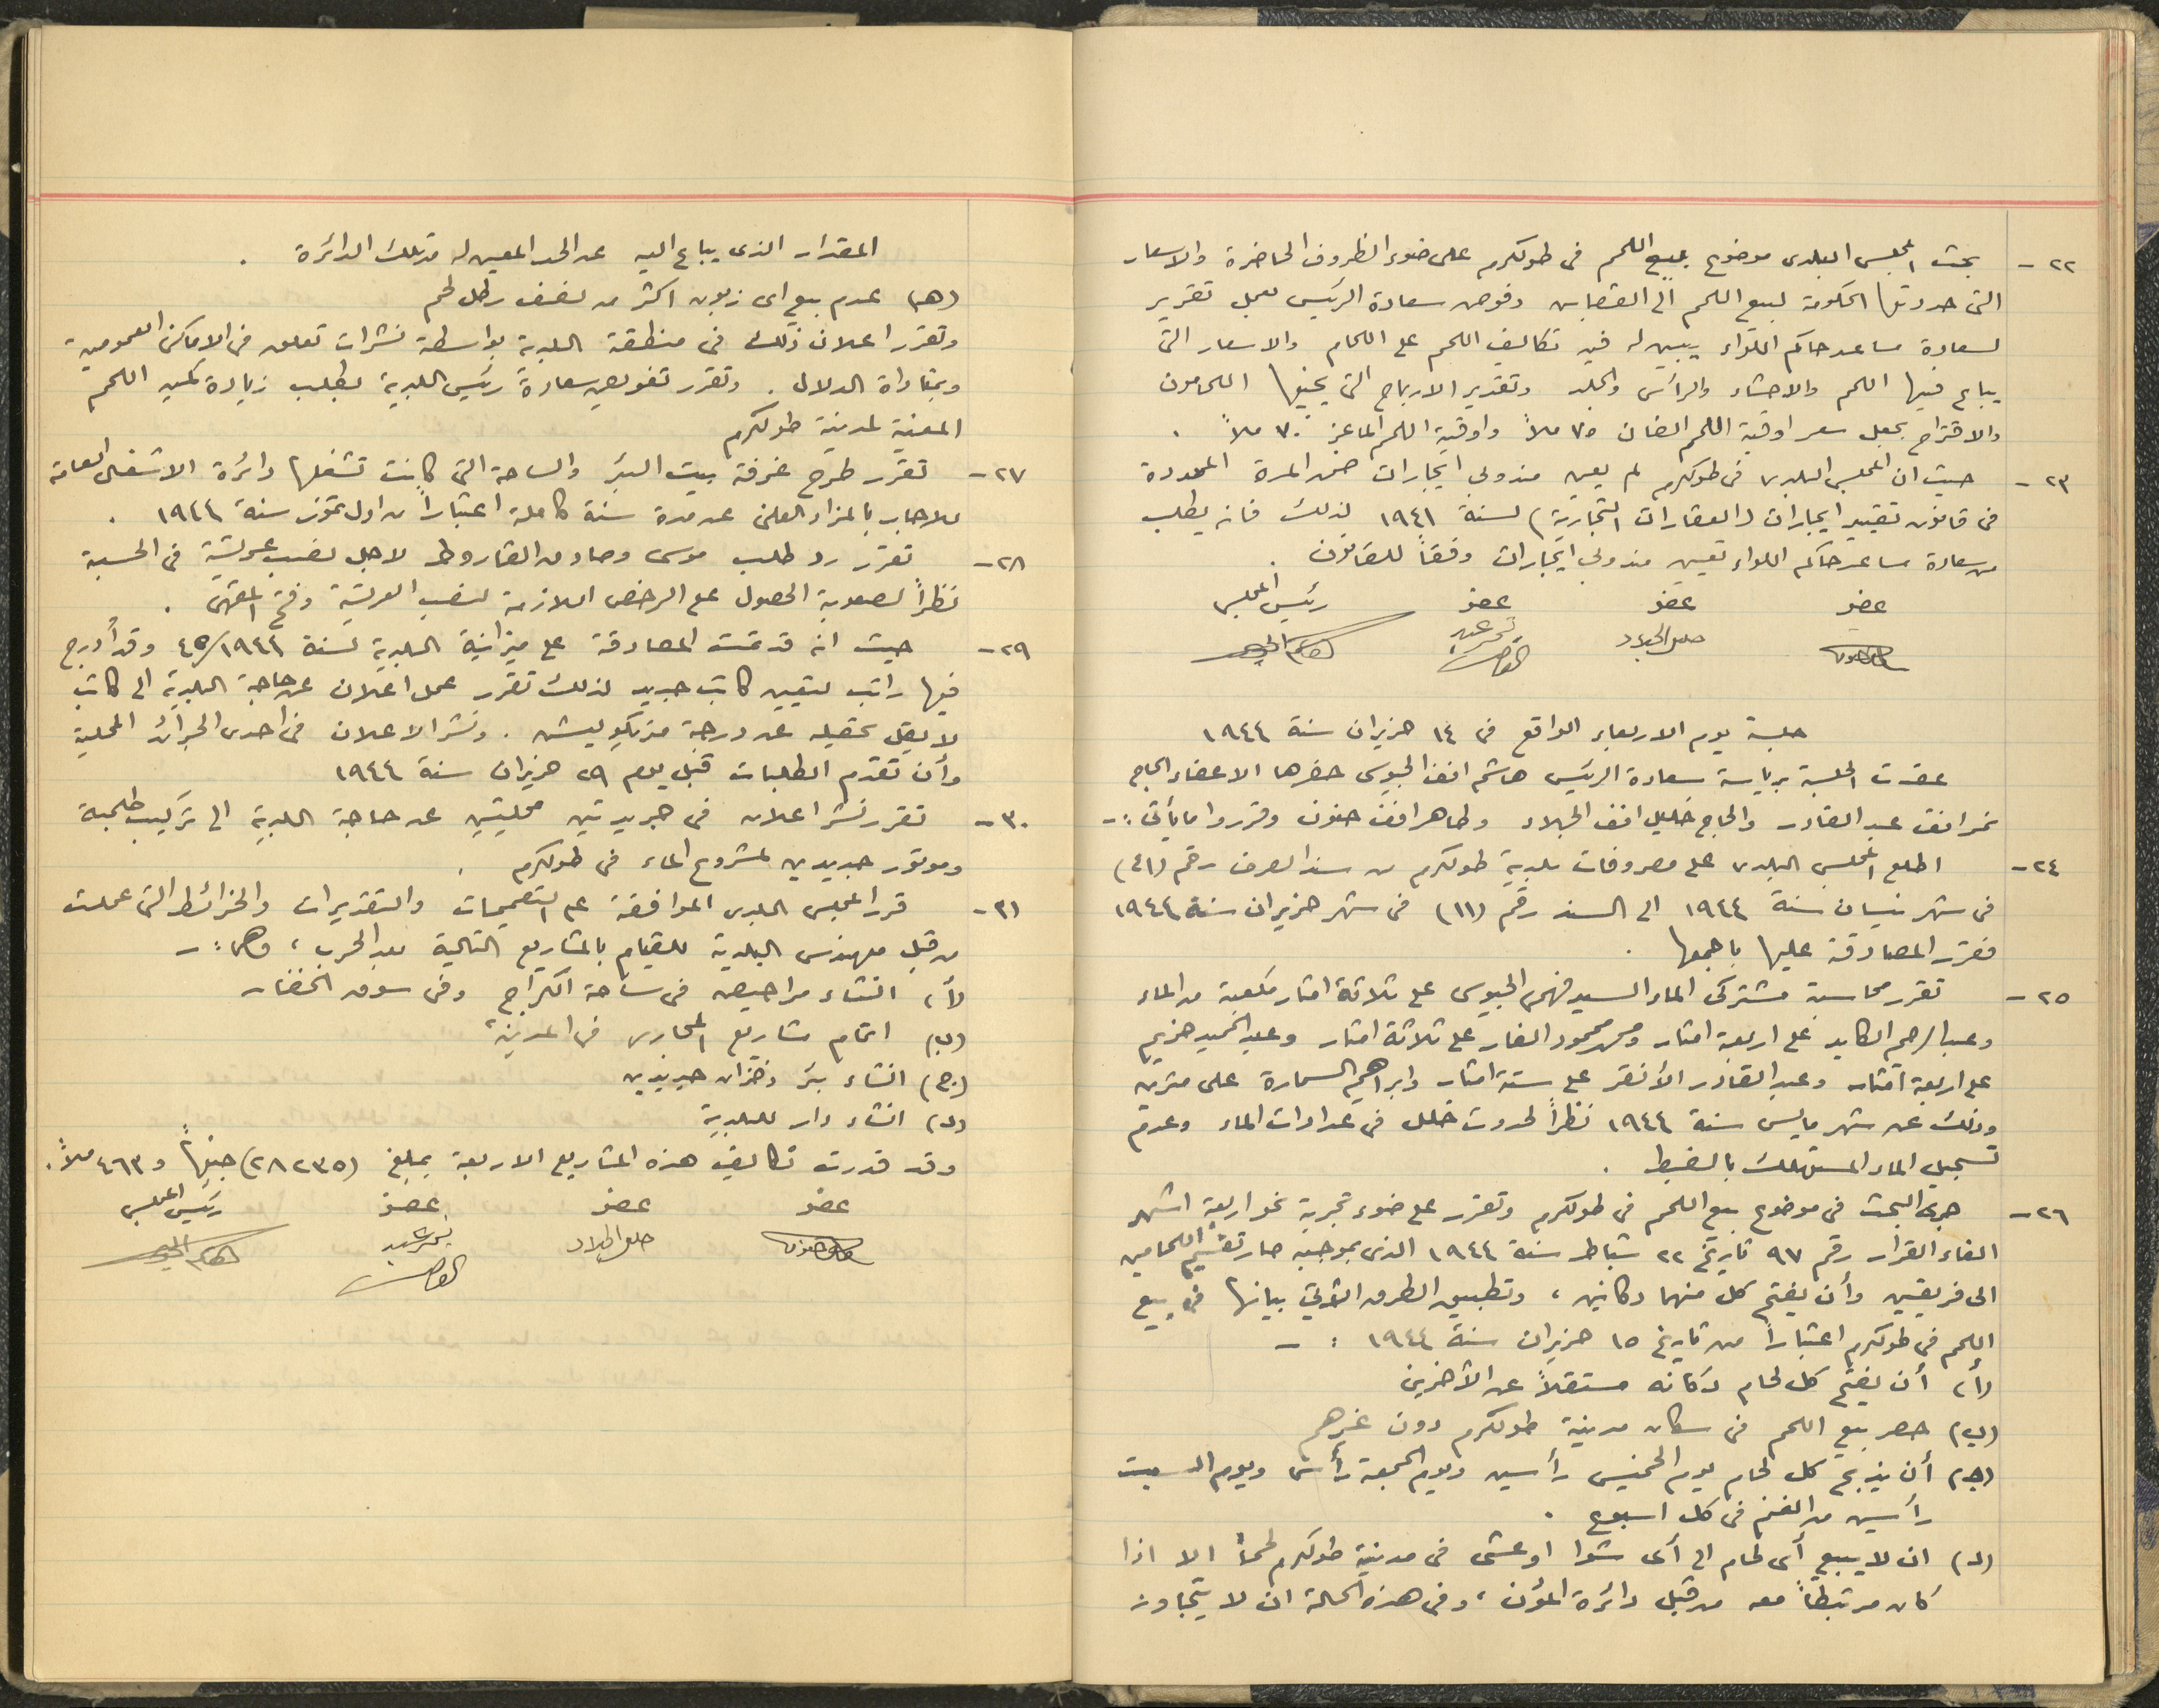 ٢٢- بحث المجلس البلدى موضوع بيع اللحم فى طولكرم على ضوء الظروف الحاضرة والاسعار
التى حددتها الحكومة لبيع اللحم الى القصابين وفوض سعادة الرئيس بعمل تقرير
لسعادة مساعد حاكم اللواء يبين له فيه تكاليف اللحم على اللحام والاسعار التى
يباع فيها اللحم والاحشاء والرأس والجلد وتقدير الارباح التى يجنيها اللحامون
والاقتراح بجعل سعر اوقية اللحم الضان ٧٥ ملاً واوقية اللحم الماعز ٧٠ ملاً .
٢٣- حيث ان المجلس البلدى فى طولكرم لم يعين مندوبي ايجارات ضمن المدة المحددة
فى قانون تقييد ايجارات (العقارات التجارية) لسنة ١٩٤١ لذلك فانه يطلب
من سعادة مساعد حاكم اللواء تعيين مندوبي ايجارات وفقاً للقانون .
عضو عضو عضو رئيس المجلس
جلسة يوم الاربعاء الواقع فى ١٤ حزيران سنة ١٩٤٤
عقدت الجلسة برياسة سعادة الرئيس هاشم افندى الجيوسى حضرها الاعضاء الحاج
نمر افندى عبد القادر والحاج خليل افندى الجلاد وطاهر افندى حنون وقرروا ما يأتى :-
٢٤- اطلع المجلس البلدى على مصروفات بلدية طولكرم من سند الصرف رقم (٤١)
فى شهر نيسان سنة ١٩٤٤ الى السند رقم (١١) فى شهر حزيران سنة ١٩٤٤
فقرر المصادقة عليها باجمعها .
٢٥- تقرر محاسبة مشتركى الماء السيد فهمى الجيوسى على ثلاثة امتار مكعبة من الماء
وعبد الرحيم الكايد على اربعة امتار ومحمد محمود الفار على ثلاثة امتار وعبد الحميد خريم
على اربعة امتار وعبد القادر الأنقر على ستة امتار وابراهيم السمارة على مترين
وذلك عن شهر مايس سنة ١٩٤٤ نظراً لحدوث خلل فى عدادات الماء وعدم
تسجيل الماء المستهلك بالضبط .
٢٦- جرى البحث فى موضوع بيع اللحم فى طولكرم وتقرر على ضوء تجربة نحو اربعة اشهر
الغاء القرار رقم ٩٧ تاريخ ٢٢ شباط سنة ١٩٤٤ الذى بموجبه صار تقسيم اللحامين
الى فريقين وأن يفتح كل منهما دكانين ، وتطبيق الطرق الآتي بيانها فى بيع
اللحم فى طولكرم اعتباراً من تاريخ ١٥ حزيران سنة ١٩٤٤ :-
(أ) أن يفتح كل لحام دكانه مستقلاً عن الآخرين
(ب) حصر بيع اللحم فى سكان مدينة طولكرم دون غيرهم
(ج) أن يذبح كل لحام يوم الخميس رأسين ويوم الجمعة رأس ويوم السبت
رأسين من الغنم فى كل اسبوع .
(د) ان لا يبيع أى لحام الى أى شوا او عشى فى مدينة طولكرم لحماً الا اذا
كان مرتبطاً معه من قبل دائرة المؤن ، وفى هذه الحالة ان لا يتجاوز
المقدار الذى يباع اليه عن الحد المعين له من تلك الدائرة .
(هـ) عدم بيع اى زبون اكثر من نصف رطل لحم
وتقرر اعلان ذلك فى منطقة البلدية بواسطة نشرات تعلق فى الاماكن العمومية
وبمناداة الدلال . وتقرر تفويض سعادة رئيس البلدية بطلب زيادة كمية اللحم
المعينة لمدينة طولكرم
٢٧- تقرر طرح غرفة بيت البئر والساحة التى كانت تشغلها دائرة الاشغال العامة
للايجار بالمزاد العلنى عن مدة سنة كاملة اعتباراً من اول تموز سنة ١٩٤٤ .
٢٨- تقرر رد طلب موسى وصادق القاروط لاجل نصب عريشة فى الحسبة
نظراً لصعوبة الحصول على الرخص اللازمة لنصب العريشة وفتح المقهى .
٢٩- حيث انه قد تمت المصادقة على ميزانية البلدية لسنة ٤٥/١٩٤٤ وقد أدرج
فيها راتب لتعيين كاتب جديد لذلك تقرر عمل اعلان عن حاجة البلدية الى كاتب
لا يقل تحصيله عن درجة متريكوليشن . ونشر الاعلان فى احدى الجرائد المحلية
وأن تقدم الطلبات قبل يوم ٢٩ حزيران سنة ١٩٤٤
٣٠- تقرر نشر اعلان فى جريدتين محليتين عن حاجة البلدية الى تركيب طلمبة
وموتور جديدين لمشروع الماء فى طولكرم .
٣١- قرر المجلس البلدى الموافقة على التصميمات والتقديرات والخرائط التى عملت
من قبل مهندس البلدية للقيام بالمشاريع التالية بعد الحرب ، وهى :-
(أ) انشاء مراحيض فى ساحة الكراج وفى سوق الخضار
(ب) اتمام مشاريع المجارى فى المدينة
(ج) انشاء بئر وخزان جديدين
(د) انشاء دار للبلدية
وقد قدرت تكاليف هذه المشاريع الاربعة بمبلغ (٢٨٢٣٥) جنيهاً و ٤٦٣ ملاً .
عضو عضو عضو رئيس المجلس